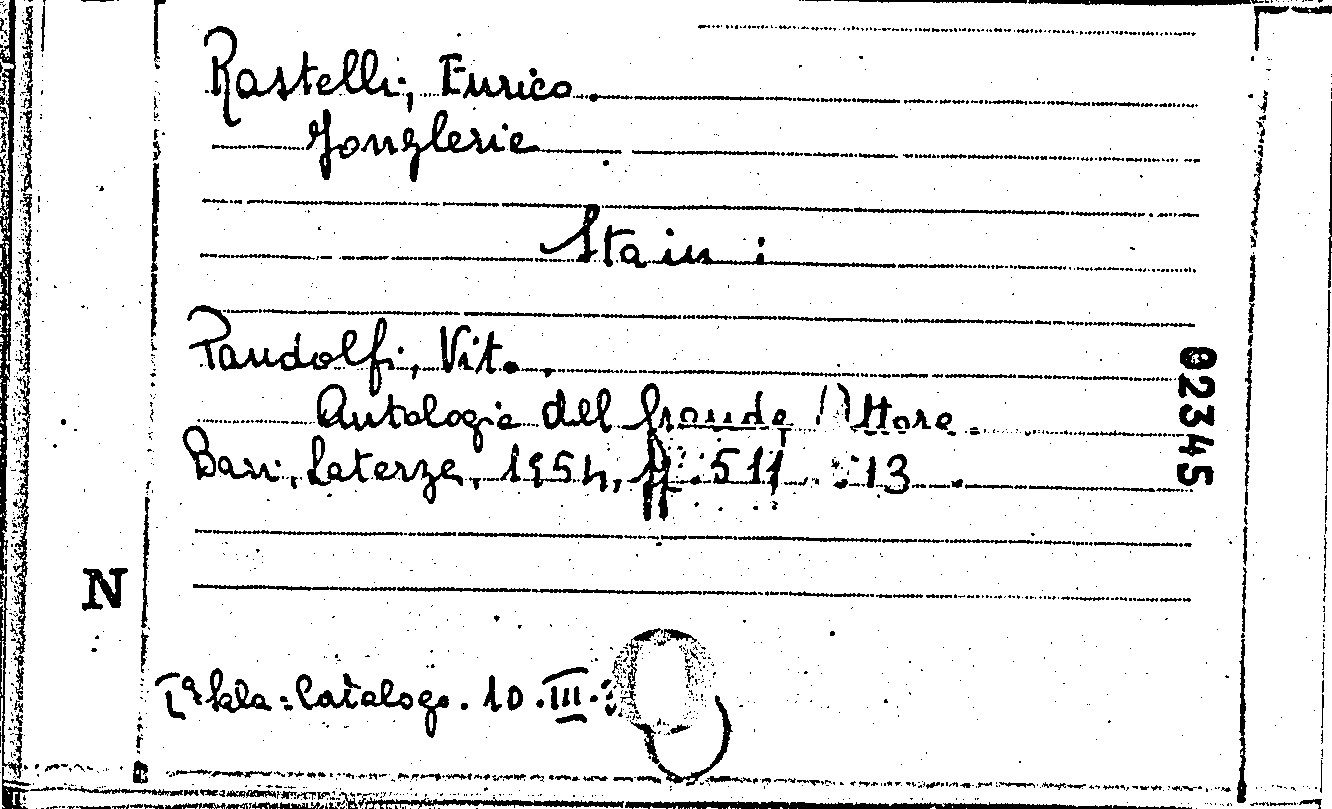 Rastelli, Enrico.
Jonglerie
Sta in :
Pandolfi, Vito.
Antologia del grande Attore.
Bari, Laterza, 1954, pp. 511 13.
02345
N
Catalogo. 10.III.